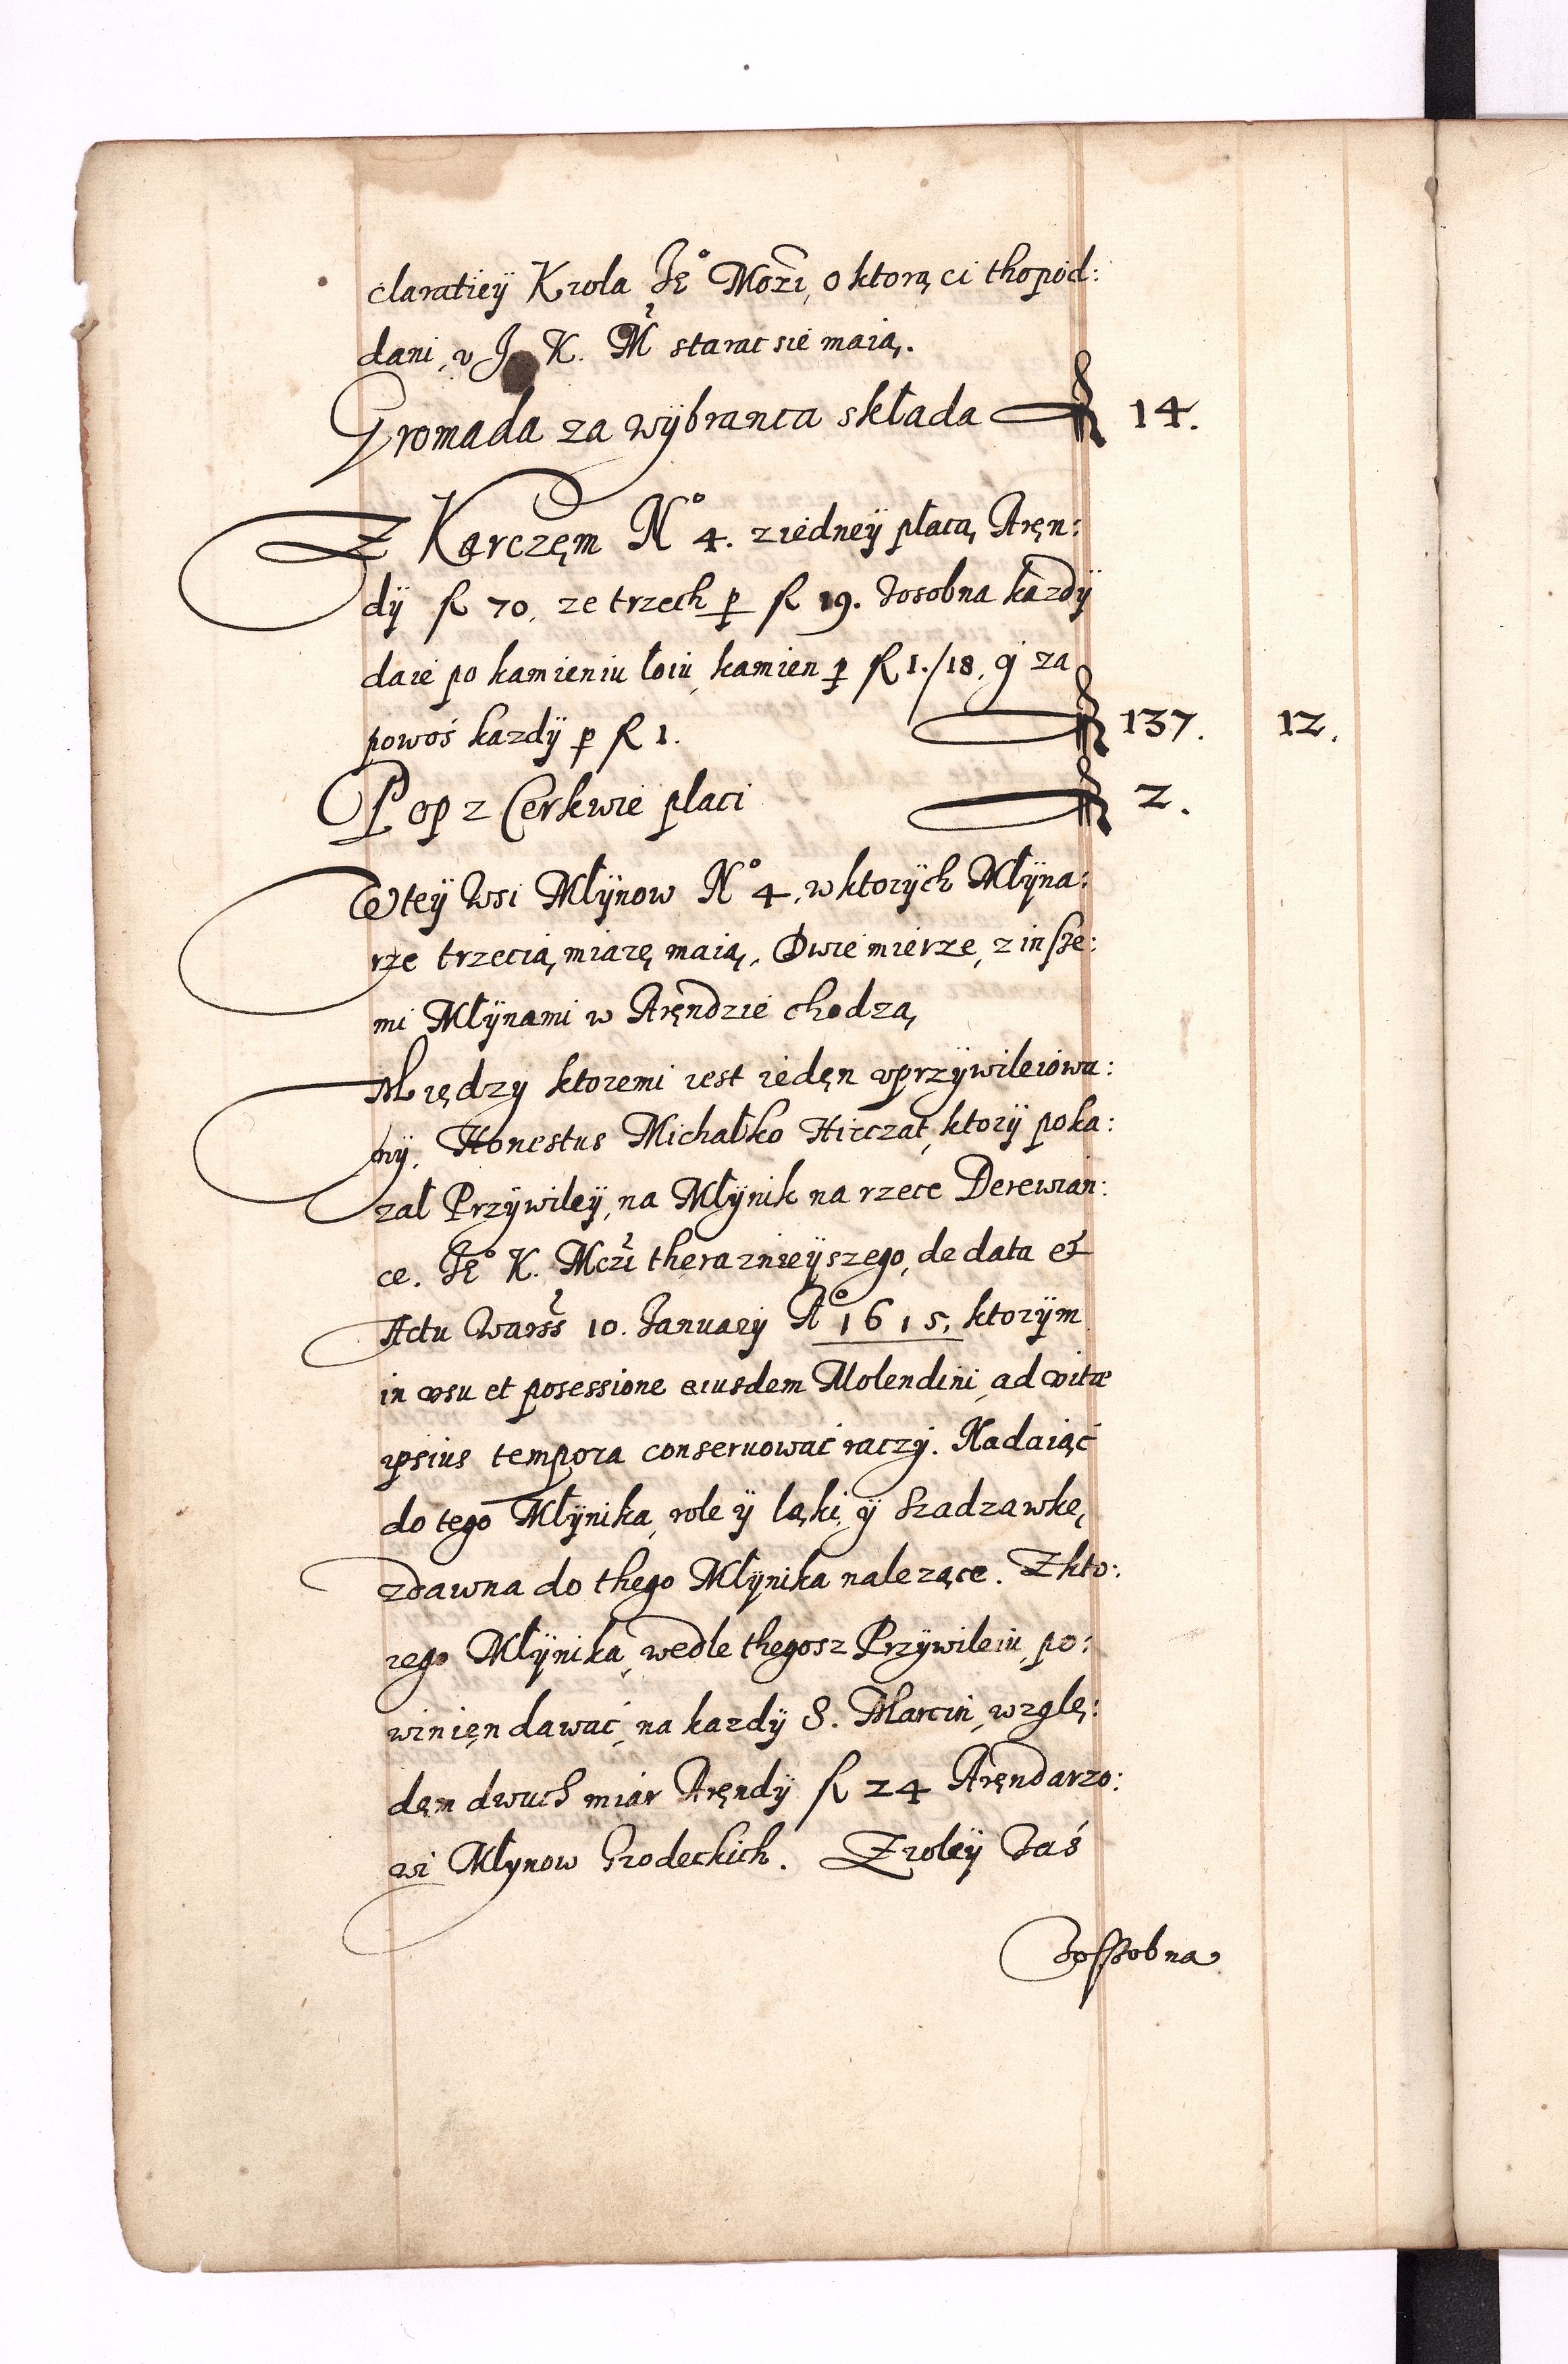 claratieÿ Krola Jeº Mozi, o ktorą ci tho pod:
dani, v J K. M starac sie maią.
Gromada za wÿbranca składa fl 14.
Z Karczęm Nº 4. z iedneÿ płacą Aręn:
dÿ fl 70, ze trzech p fl 19. Zosobna kazdÿ
daie po kamieniu łoiu, kamien p fl 1./18, y za
powoś kazdÿ p fl 1. fl 137. 12.
Pop z Cerkwie płaci fl 2.
W teÿ Wsi Młÿnow Nº 4, w ktorÿch Młÿna:
rze trzecią miarę maią, Dwie mierze, z insze:
mi Młÿnami w Aręndzie chodzą,
Między ktoremi iest iedęn vprzÿwileiowa:
nÿ, Honestus Michałko Hirczał, ktorÿ poka:
zał Przÿwileÿ, na Młÿnik na rzece Derewian:
ce. Jeº K. Mczi theraznieÿszego, de data et
Actu Warss 10. Januarÿ Aº 1615, ktorÿm
in vsu et posessione eiusdem Molendini, ad vitæ
ipsius tempora conseruowac raczÿ. Nadaiąc
do tego Młÿnika, role ÿ łąki, ÿ Szadzawkę,
zdawna do thego Młÿnika nalezące. Z kto:
rego Młÿnika, wedle thegosz Przÿwileiu, po:
winięn dawać, na kazdÿ S. Marcin, wzglę:
dęm dwuch miar Aręndÿ fl 24 Aręndarzo:
wi Młynow Grodeckich. Z roleÿ Zaś
Zossobna